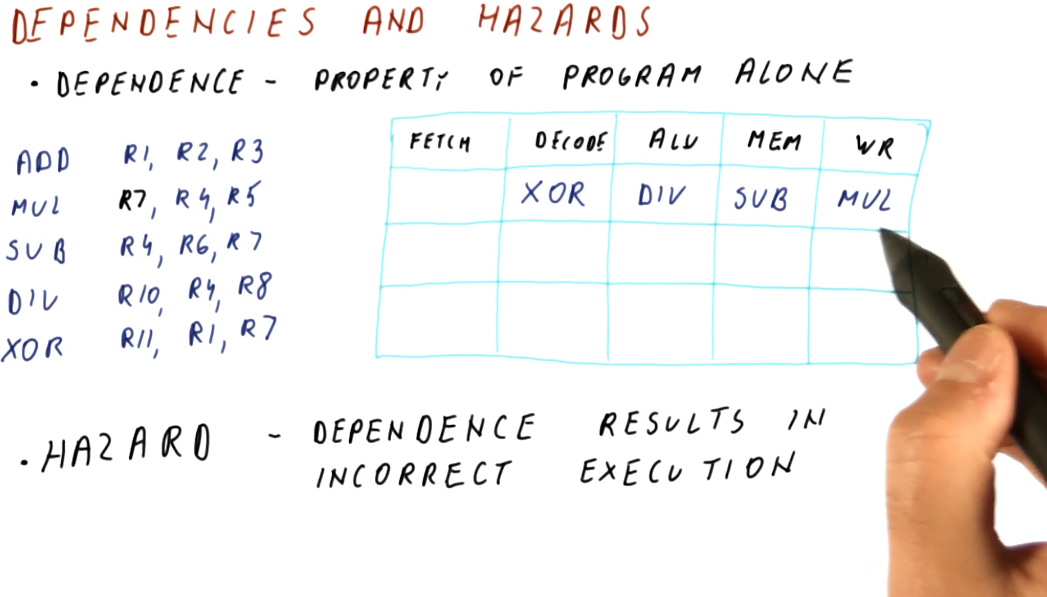 DEPENDENCIES AND HAZARDS
• DEPENDENCE - PROPERTY OF PROGRAM ALONE
ADD R1, R2, R3
MUL R7, R4, R5
SUB R4, R6, R7
DIV R10, R4, R8
XOR R11, R1, R7
FETCH DECODE ALU MEM WR
XOR DIV SUB MUL
• HAZARD - DEPENDENCE RESULTS IN
INCORRECT EXECUTION